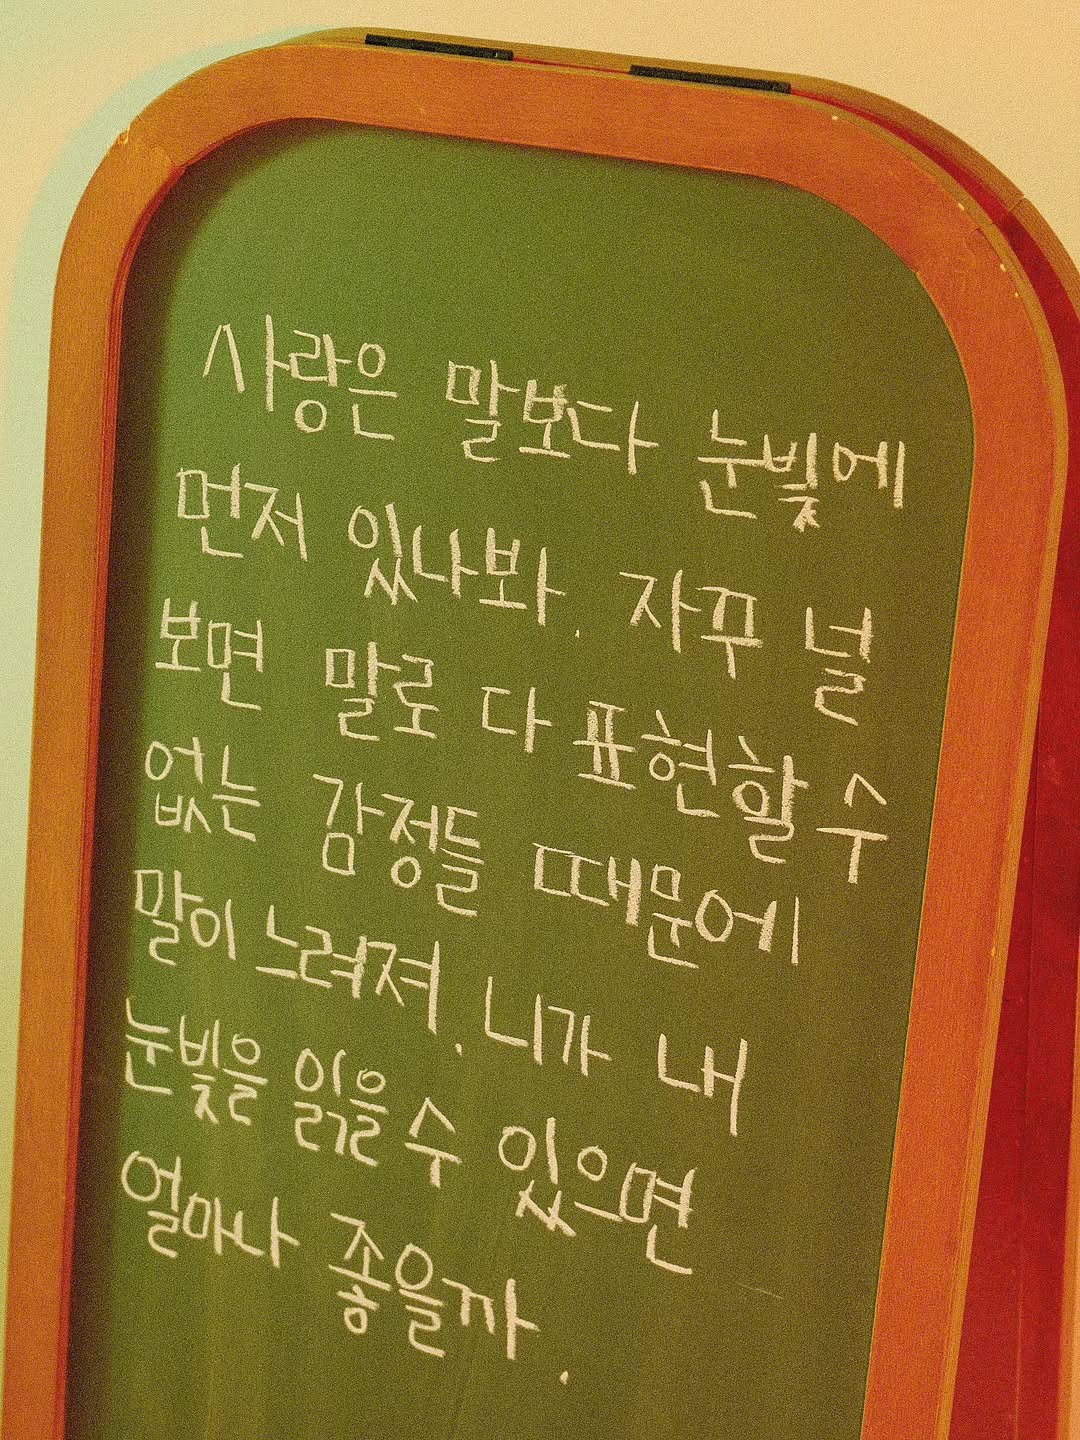 사랑은 말보다 눈빛에
먼저 있나봐. 자꾸 널
보면 말로 다 표현할 수
없는 감정들 때문에
말이 느려져. 니가 내
눈빛을 읽을 수 있으면
얼마나 좋을까.